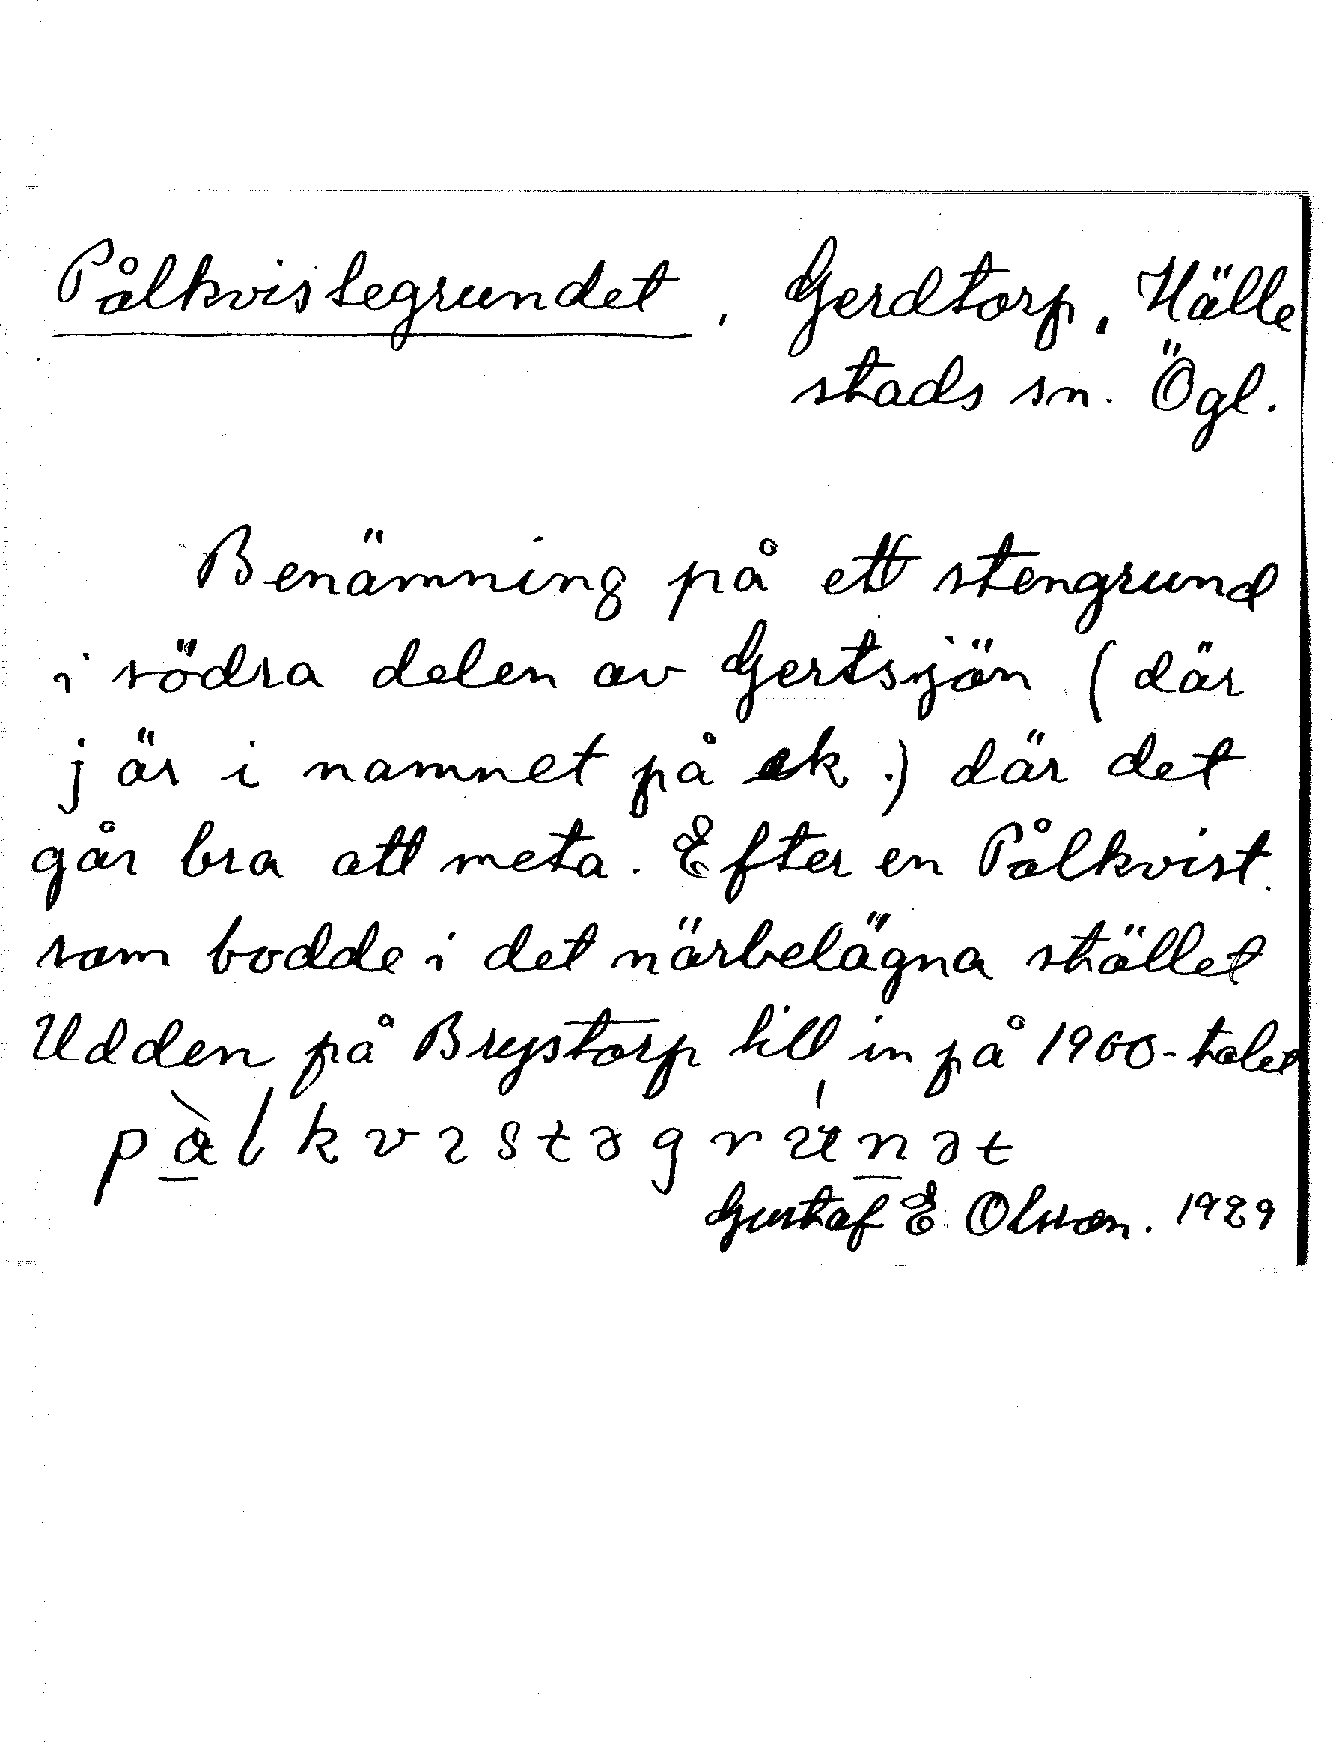 Pålkvistegrundet, Gerdtorp, Hälle
stads sn. Ögl.
Benämning på ett stengrund
i södra delen av Gertsjön (där
j är i namnet på ek.) där det
går bra att meta. Efter en Pålkvist
som bodde i det närbelägna stället
Udden på Brystorp till in på 1900-talet
Gustaf E Olsson. 1989